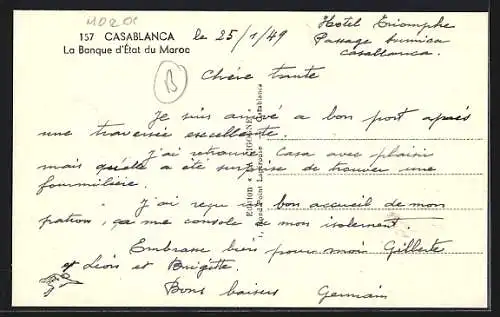 MOROC
157 CASABLANCA
La Banque d'État du Maroc
le 25/1/49
Hotel Triomphe
Passage Sumica
Casablanca.
B
Chère tante
Je suis arrivé a bon port après
une traversée excellente.
J'ai retrouvé Casa avec plaisir
mais quelle a été surprise de trouver une
fourmilière.
J'ai reçu bon accueil de mon
patron, ça me console de mon isolement.
Embrasse bien pour moi Gilberte
et Lions et Brigitte.
Bons baisers Germain
EDITION
1, Rond-Point Lapérouse Casablanca